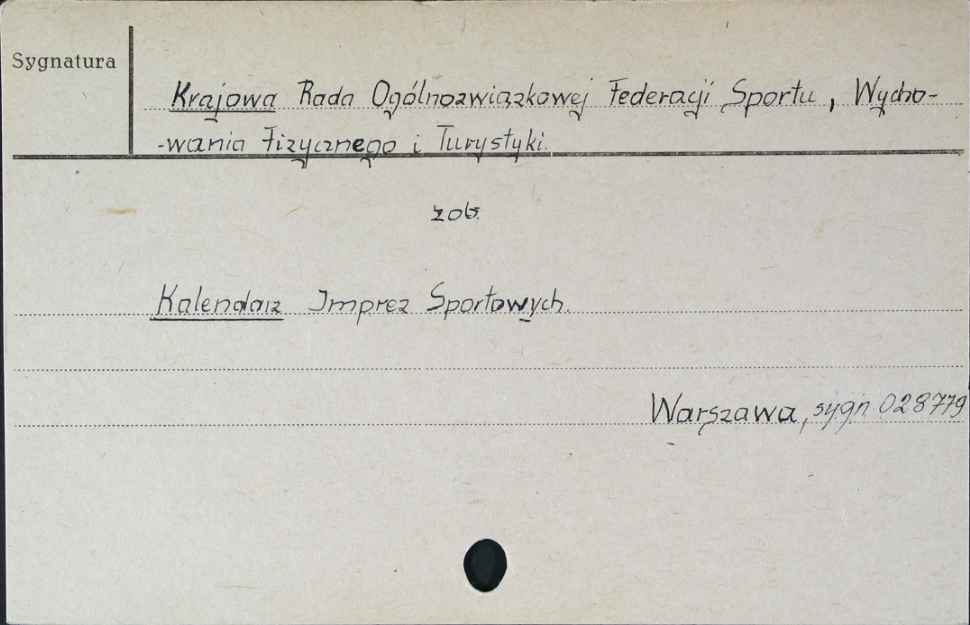 Sygnatura
Krajowa Rada Ogólnozwiązkowej Federacji Sportu, Wycho-
-wania Fizycznego i Turystyki.
zob.
Kalendarz Imprez Sportowych.
Warszawa, sygn 028779